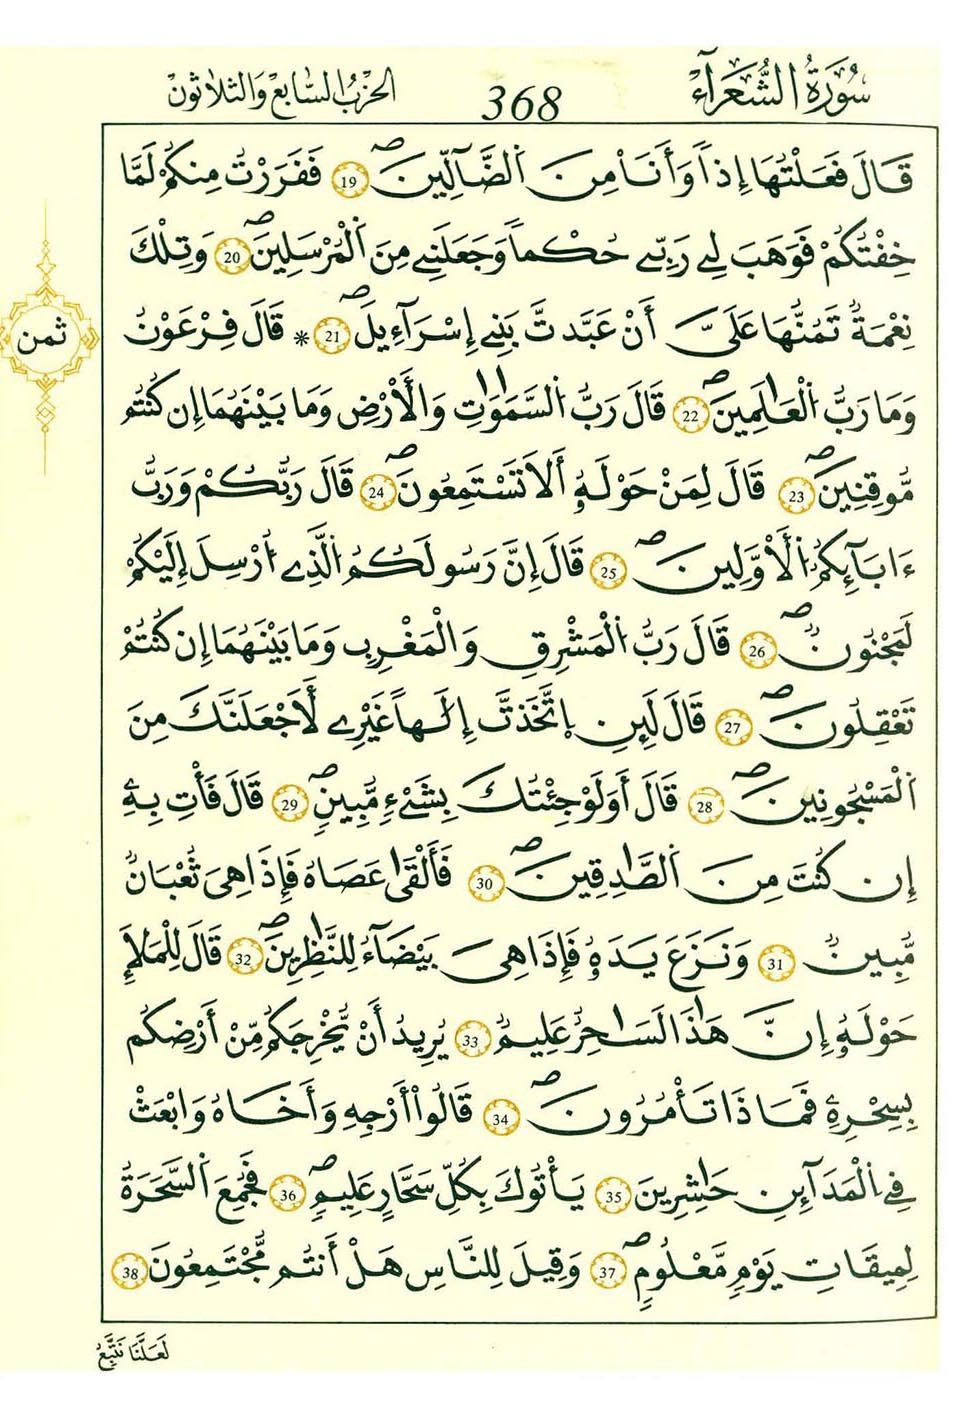 سُورَةُ الشُّعَرَآءِ 368 الحِزْبُ السَّابِعُ وَالثَّلَاثُونَ
قَالَ فَعَلْتُهَا إِذاً وَأَنَا مِنَ اَ۬لضَّآلِّينَۖ 19 فَفَرَرْتُ مِنكُمْ لَمَّا
خِفْتُكُمْ فَوَهَبَ لِے رَبِّے حُكْماً وَجَعَلَنِے مِنَ اَ۬لْمُرْسَلِينَۖ 20 وَتِلْكَ
نِعْمَةٞ تَمُنُّهَا عَلَيَّ أَنْ عَبَّدتَّ بَنِے إِسْرَآءِيلَۖ 21 * قَالَ فِرْعَوْنُ
ثمن
وَمَا رَبُّ اُ۬لْعَٰلَمِينَۖ 22 قَالَ رَبُّ اُ۬لسَّمَٰوَٰتِ وَالْأَرْضِ وَمَا بَيْنَهُمَا إِن كُنتُم
مُّوقِنِينَۖ 23 قَالَ لِمَنْ حَوْلَهُۥ أَلَا تَسْتَمِعُونَۖ 24 قَالَ رَبُّكُمْ وَرَبُّ
ءَابَآئِكُمُ اُ۬لْأَوَّلِينَۖ 25 قَالَ إِنَّ رَسُولَكُمُ اُ۬لَّذِے أُرْسِلَ إِلَيْكُمْ
لَمَجْنُونٞۖ 26 قَالَ رَبُّ اُ۬لْمَشْرِقِ وَالْمَغْرِبِ وَمَا بَيْنَهُمَا إِن كُنتُمْ
تَعْقِلُونَۖ 27 قَالَ لَئِنِ اِ۪تَّخَذتَّ إِلَٰهاً غَيْرِے لَأَجْعَلَنَّكَ مِنَ
اَ۬لْمَسْجُونِينَۖ 28 قَالَ أَوَلَوْ جِئْتُكَ بِشَےْءٖ مُّبِينٖۖ 29 قَالَ فَأْتِ بِهِۦ
إِن كُنتَ مِنَ اَ۬لصَّٰدِقِينَۖ 30 فَأَلْقَىٰ عَصَاهُ فَإِذَا هِيَ ثُعْبَانٞ
مُّبِينٞ 31 وَنَزَعَ يَدَهُۥ فَإِذَا هِيَ بَيْضَآءُ لِلنَّٰظِرِينَۖ 32 قَالَ لِلْمَلَإِ
حَوْلَهُۥ إِنَّ هَٰذَا لَسَٰحِرٌ عَلِيمٞ 33 يُرِيدُ أَنْ يُّخْرِجَكُم مِّنْ أَرْضِكُم
بِسِحْرِهِۦ فَمَاذَا تَأْمُرُونَۖ 34 قَالُواْ أَرْجِهِ وَأَخَاهُ وَابْعَثْ
فِے اِ۬لْمَدَآئِنِ حَٰشِرِينَ 35 يَأْتُوكَ بِكُلِّ سَحَّارٍ عَلِيمٖۖ 36 فَجُمِعَ اَ۬لسَّحَرَةُ
لِمِيقَٰتِ يَوْمٖ مَّعْلُومٖۖ 37 وَقِيلَ لِلنَّاسِ هَلْ أَنتُم مُّجْتَمِعُونَ 38
لَعَلَّنَا نَتَّبِعُ